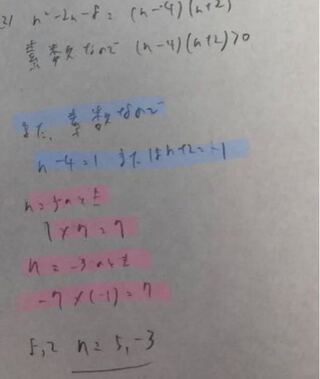 (2) n²-2n-8=(n-4)(n+2)
素数なので (n-4)(n+2)>0
また、素数なので
n-4=1 またはn+2=-1
n=5のとき
1×7=7
n=-3のとき
-7×(-1)=7
よって n=5,-3